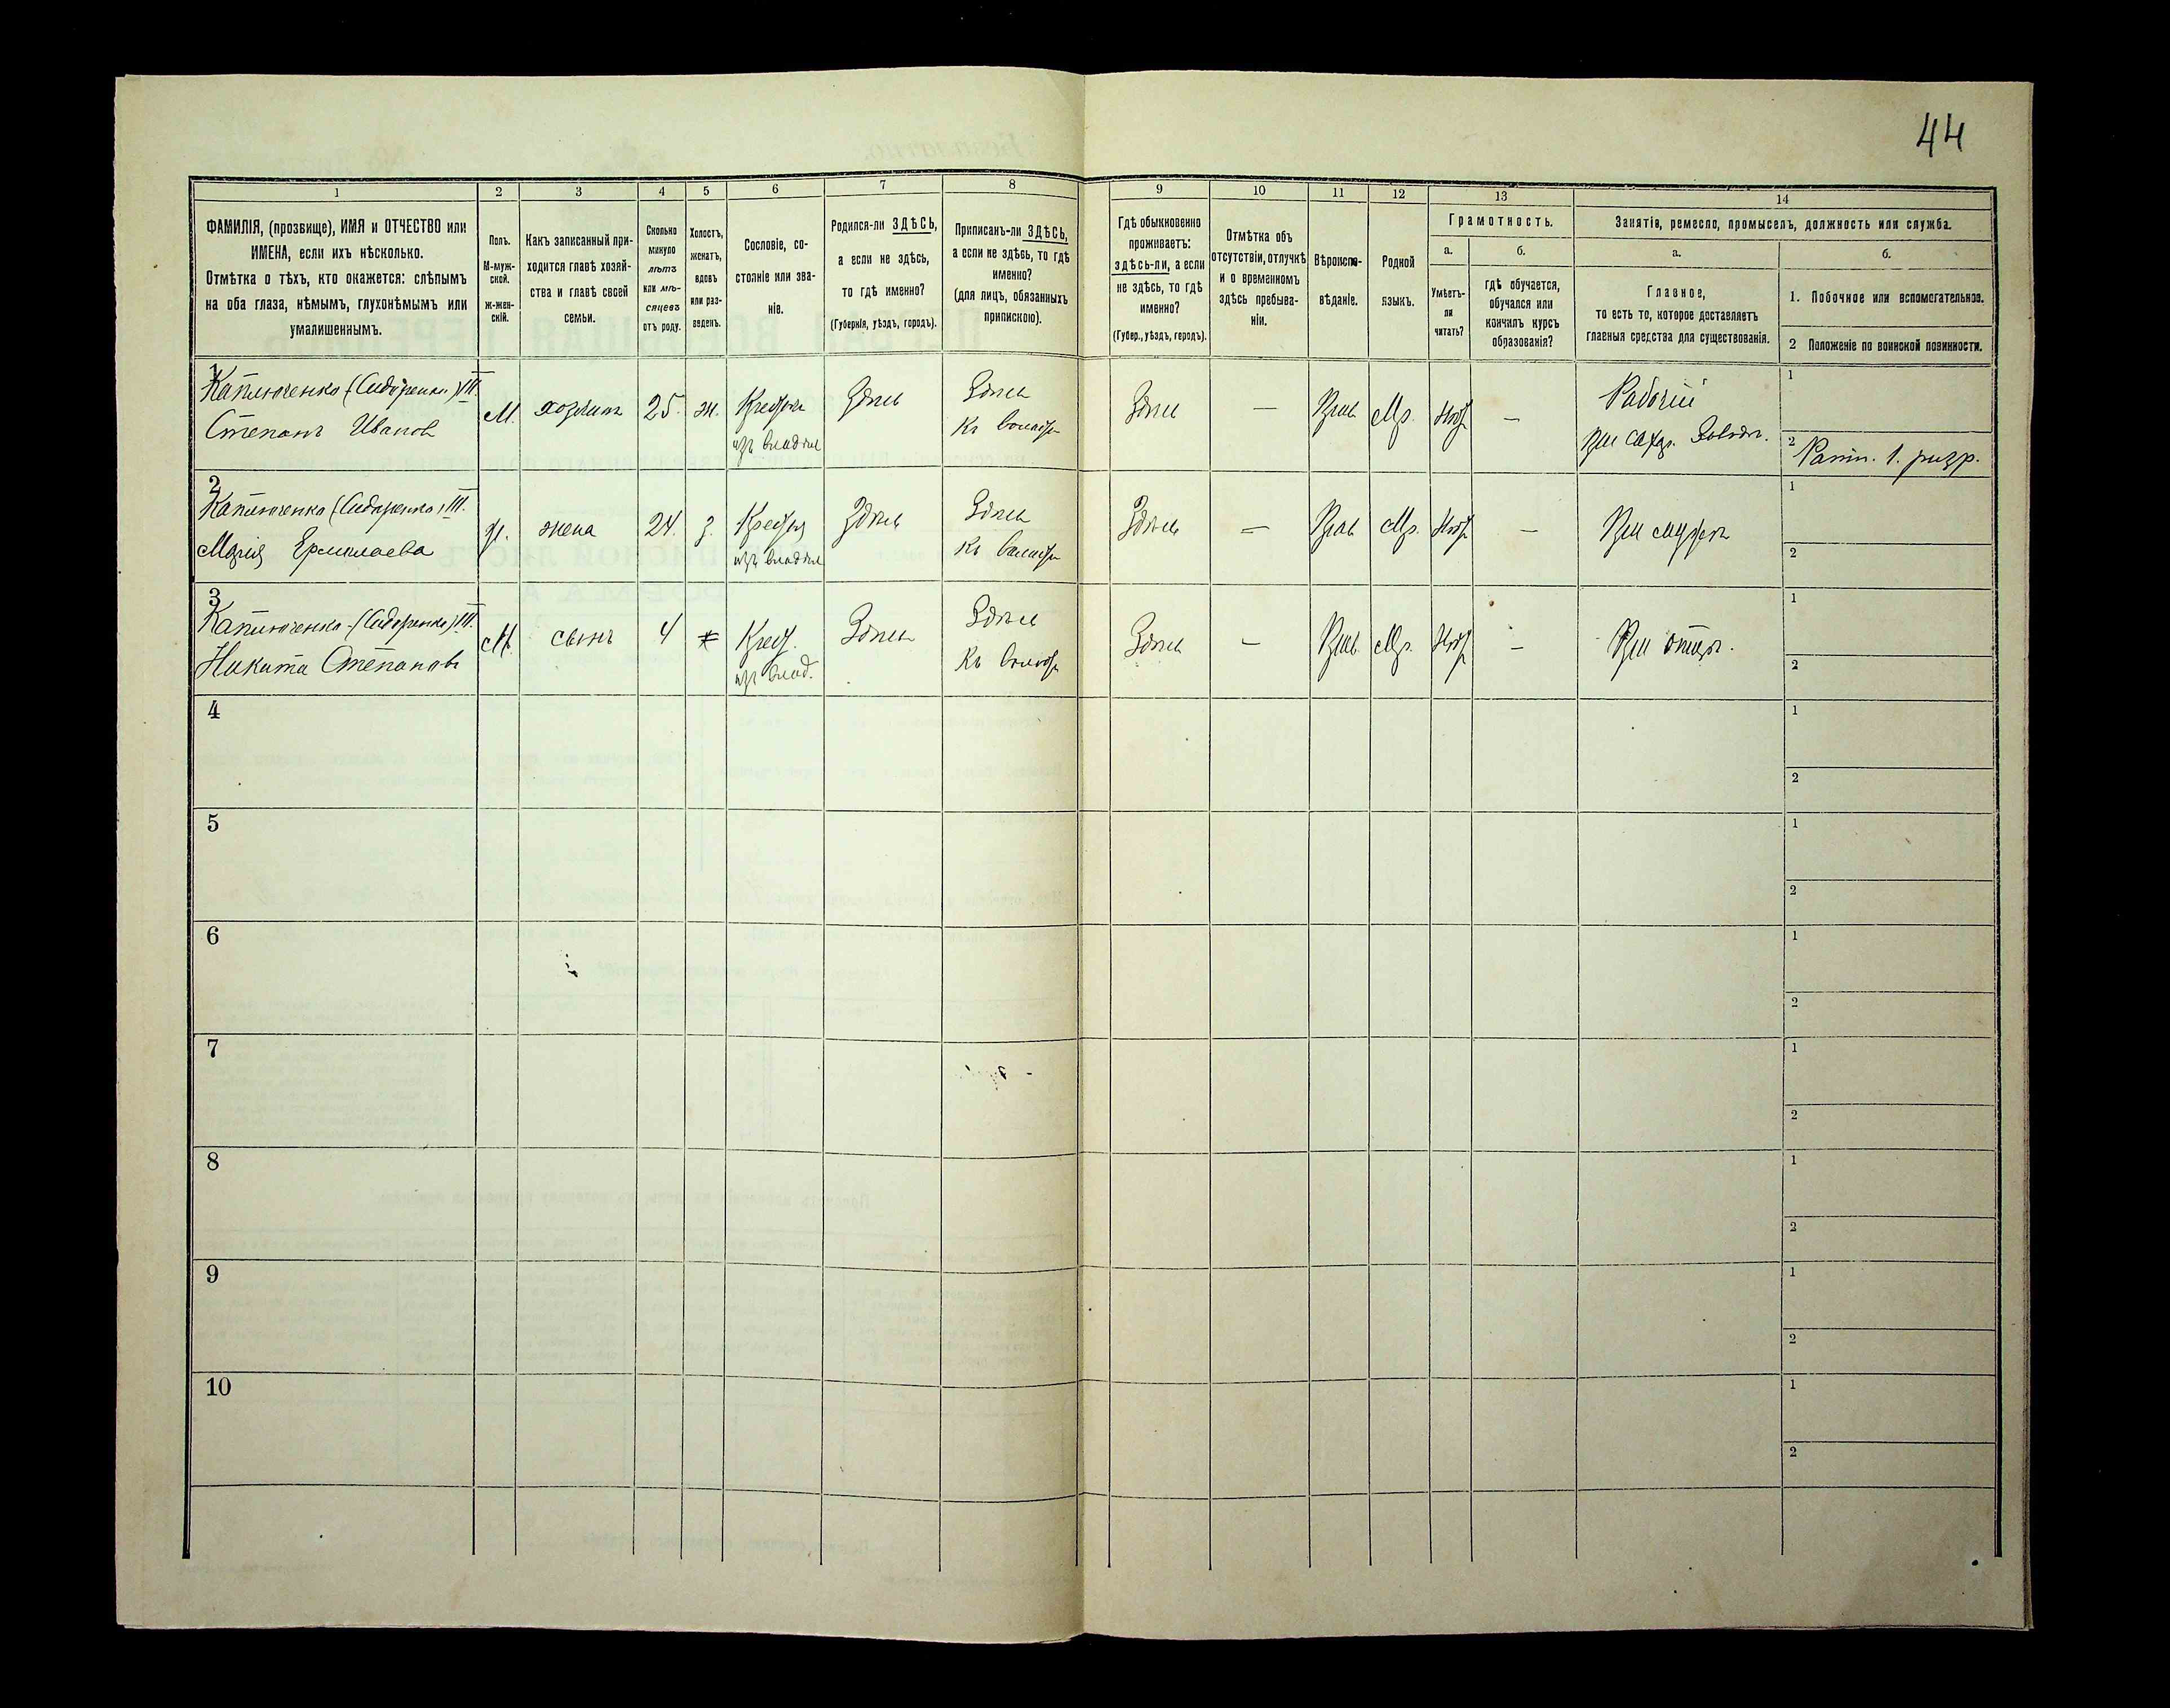 44
1
2
3
4
5
6
7
8
9
10
11
12
13
14
ФАМИЛІЯ, (прозвище), ИМЯ и ОТЧЕСТВО или
ИМЕНА, если ихъ нѣсколько.
Отмѣтка о тѣхъ, кто окажется: слѣпымъ
на оба глаза, нѣмымъ, глухонѣмымъ или
умалишеннымъ.
Полъ.
М-муж-
ской.
ж-жен-
скій.
Какъ записанный при-
ходится главѣ хозяй-
ства и главѣ своей
семьи.
Сколько
минуло
лѣтъ
или мѣ-
сяцевъ
отъ роду.
Холостъ,
женатъ,
вдовъ
или раз-
веденъ.
Сословіе, со-
стояніе или зва-
ніе.
Родился-ли ЗДѢСЬ,
а если не здѣсь,
то гдѣ именно?
(Губернія, уѣздъ, городъ).
Приписанъ-ли ЗДѢСЬ,
а если не здѣсь, то гдѣ
именно?
(для лицъ, обязанныхъ
припискою).
Гдѣ обыкновенно
проживаетъ:
здѣсь-ли, а если
не здѣсь, то гдѣ
именно?
(Губер., уѣздъ, городъ).
Отмѣтка объ
отсутствіи, отлучкѣ
и о временномъ
здѣсь пребыва-
ніи.
Вѣроиспо-
вѣданіе.
Родной
языкъ.
Грамотность.
а.
Умѣетъ-
ли
читать?
б.
гдѣ обучается,
обучался или
кончилъ курсъ
образованія?
Занятіе, ремесло, промыселъ, должность или служба.
а.
Главное,
то есть то, которое доставляетъ
главныя средства для существованія.
б.
1. Побочное или вспомогательное.
2 Положеніе по воинской повинности.
1
Степанъ Иванов
М.
хозяинъ
25.
ж.
из владѣл
Здѣсь
Здѣсь
къ волости
Здѣсь
—
Прав
Мр.
Нѣт
—
Рабочій
при сахар. Заводѣ.
1
2 Ратн. 1. разр.
2
Марія Ермолаева
ж.
жена
24.
з.
из владѣл
Здѣсь
Здѣсь
къ волости
Здѣсь
—
Прав
Мр.
Нѣт
—
При мужѣ
1
2
3
Никита Степановъ
М.
сынъ
4
х
Крест.
из влад.
Здѣсь
Здѣсь
къ волости
Здѣсь
—
Прав
Мр.
Нѣт
—
При отцѣ.
1
2
4
1
2
5
1
2
6
1
2
7
1
2
8
1
2
9
1
2
10
1
2